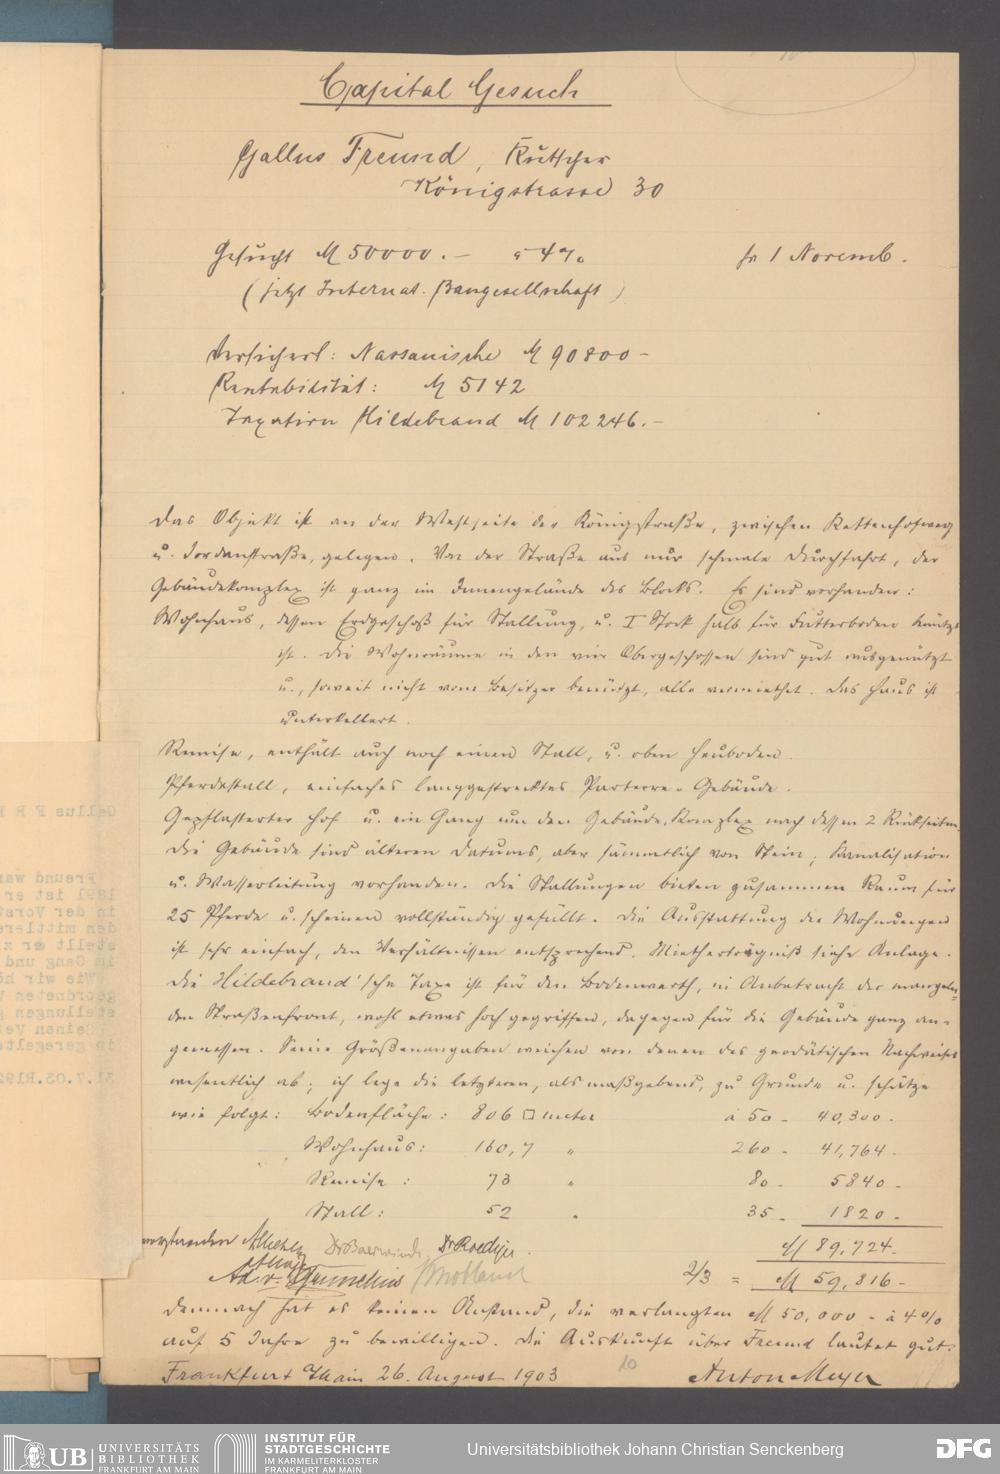 Capital Gesuch
Gallus Freund, Kutscher
Königstrasse 30
Gesucht M 50000.– à 4% fr 1 Novemb.
(jetzt Internat. Baugesellschaft)
Versichert: Nassauische M 90800–
Rentabilität: M 5142
Taxation Hildebrand M 102246.–
Das Objekt ist an der Westseite der Königstraße, zwischen Kettenhofweg
u. Jordanstraße, gelegen. Von der Straße aus nur schmale Durchfahrt, der
Gebäudekomplex ist ganz im Innengelände des Blocks. Es sind vorhanden:
Wohnhaus, dessen Erdgeschoß für Stallung, u. I Stock halb für Futterboden benützt
ist. Die Wohnräume in den vier Obergeschossen sind gut ausgenützt
u., soweit nicht vom Besitzer benützt, alle vermiethet. Das Haus ist
unterkellert.
Remise, enthält auch noch einen Stall, u. oben Heuboden.
Pferdestall, einfaches langgestrecktes Parterre-Gebäude.
Gepflasterter Hof u. ein Gang um den Gebäude-Komplex nach dessen 2 Rückseiten.
Die Gebäude sind älteren Datums, aber sämmtlich von Stein; Kanalisation
u. Wasserleitung vorhanden. Die Stallungen bieten zusammen Raum für
25 Pferde u. scheinen vollständig gefüllt. Die Ausstattung der Wohnungen
ist sehr einfach, den Verhältnissen entsprechend. Miethertrögniß siehe Anlage.
Die Hildebrand'sche Taxe ist für den Bodenwerth, in Anbetracht der mangeln-
den Straßenfront, wohl etwas hoch gegriffen, dagegen für die Gebäude ganz an-
gemessen. Seine Größenangaben weichen von denen des geodätischen Nachweises
wesentlich ab; ich lege die letzteren, als maßgebend, zu Grunde u. schätze
wie folgt: Bodenfläche: 806 □ meter à 50 – 40,300.
Wohnhaus: 160,7 " 260 – 41,764 –
Remise: 73 " 80 – 5840 –
Stall: 52 " 35 – 1820 –
M 89,724 –
verstanden Dr Roediger.
2/3 = M 59,816 –
Demnach hat es keinen Anstand, die verlangten M 50,000 – à 4%
auf 5 Jahre zu bewilligen. Die Auskunft über Freund lautet gut.
Frankfurt Main 26. August 1903 10 Anton Meyer
Gallus F R
Freund war
1891 ist er
in der Vorst
den mittlere
stellt er z
im Gang und
Wie wir hö
geordneten V
stellungen
Seinen Ver
in geregelte
31.7.03.R192
UB UNIVERSITÄTS
BIBLIOTHEK
FRANKFURT AM MAIN
INSTITUT FÜR
STADTGESCHICHTE
IM KARMELITERKLOSTER
FRANKFURT AM MAIN
Universitätsbibliothek Johann Christian Senckenberg
DFG